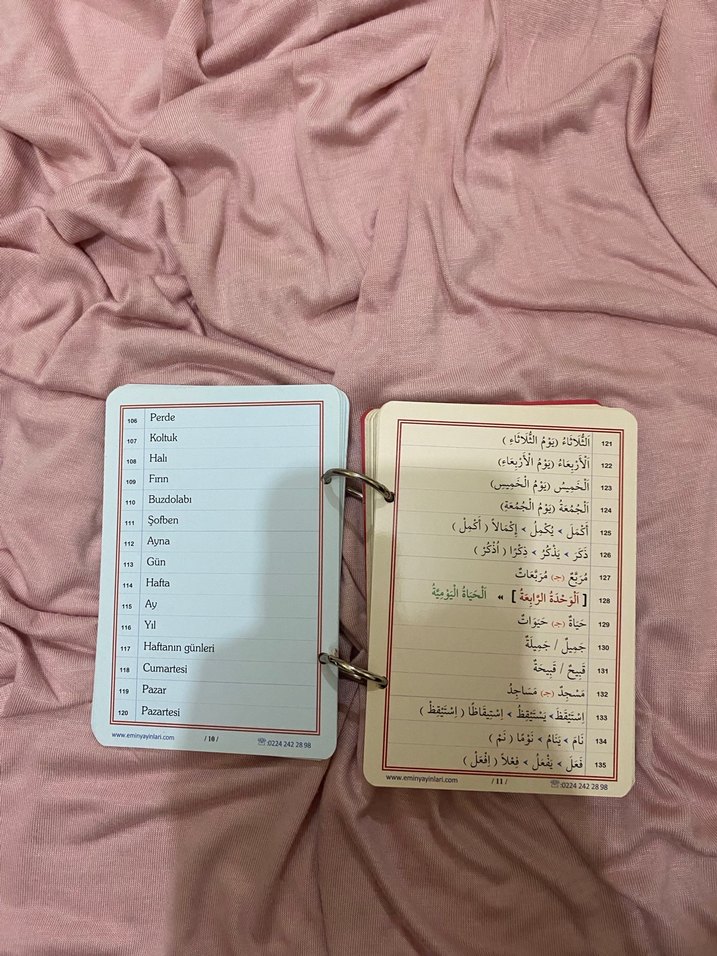 106 Perde
107 Koltuk
108 Halı
109 Fırın
110 Buzdolabı
111 Şofben
112 Ayna
113 Gün
114 Hafta
115 Ay
116 Yıl
117 Haftanın günleri
118 Cumartesi
119 Pazar
120 Pazartesi
www.eminyayinlari.com / 10 / ☏:0224 242 28 98
121 اَلثُّلَاثَاءُ (يَوْمُ الثُّلَاثَاءِ )
122 اَلْأَرْبِعَاءُ (يَوْمُ الْأَرْبِعَاءِ)
123 اَلْخَمِيسُ (يَوْمُ الْخَمِيسِ)
124 اَلْجُمُعَةُ (يَوْمُ الْجُمُعَةِ)
125 أَكْمَلَ > يُكْمِلُ > إِكْمَالاً ( أَكْمِلْ )
126 ذَكَرَ > يَذْكُرُ > ذِكْرًا ( اُذْكُرْ )
127 مُرَبَّعٌ (جـ) مُرَبَّعَاتٌ
128 [ اَلْوَحْدَةُ الرَّابِعَةُ ] » اَلْحَيَاةُ الْيَوْمِيَّةُ
129 حَيَاةٌ (جـ) حَيَوَاتٌ
130 جَمِيلٌ / جَمِيلَةٌ
131 قَبِيحٌ / قَبِيحَةٌ
132 مَسْجِدٌ (جـ) مَسَاجِدُ
133 اِسْتَيْقَظَ > يَسْتَيْقِظُ > اِسْتِيقَاظًا ( اِسْتَيْقِظْ )
134 نَامَ > يَنَامُ > نَوْمًا ( نَمْ )
135 فَعَلَ > يَفْعَلُ > فِعْلاً ( اِفْعَلْ )
www.eminyayinlari.com / 11 / ☏:0224 242 28 98